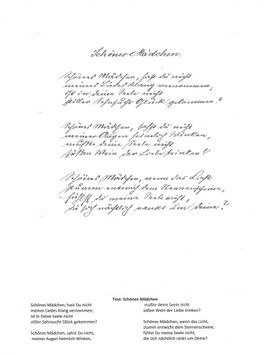 Schönes Mädchen.
Schönes Mädchen, hast Du nicht
meines Liedes Klang vernommen,
ist in Deine Seele nicht
stiller Sehnsucht Glück gekommen?
Schönes Mädchen, sahst Du nicht
meiner Augen heimlich Winken,
mußte deine Seele nicht
süßen Wein der Liebe trinken?
Schönes Mädchen, wenn das Licht
stumm entweicht dem Sternenscheine,
fühlst Du meine Seele nicht,
die sich nächtlich rankt um Deine?
Text: Schönes Mädchen
Schönes Mädchen, hast Du nicht
meines Liedes Klang vernommen;
ist in Deine Seele nicht
stiller Sehnsucht Glück gekommen?
Schönes Mädchen, sahst Du nicht
meiner Augen heimlich Winken,
mußte deine Seele nicht
süßen Wein der Liebe trinken?
Schönes Mädchen, wenn das Licht,
stumm entweicht dem Sternenscheine,
fühlst Du meine Seele nicht,
die sich nächtlich rankt um Deine?